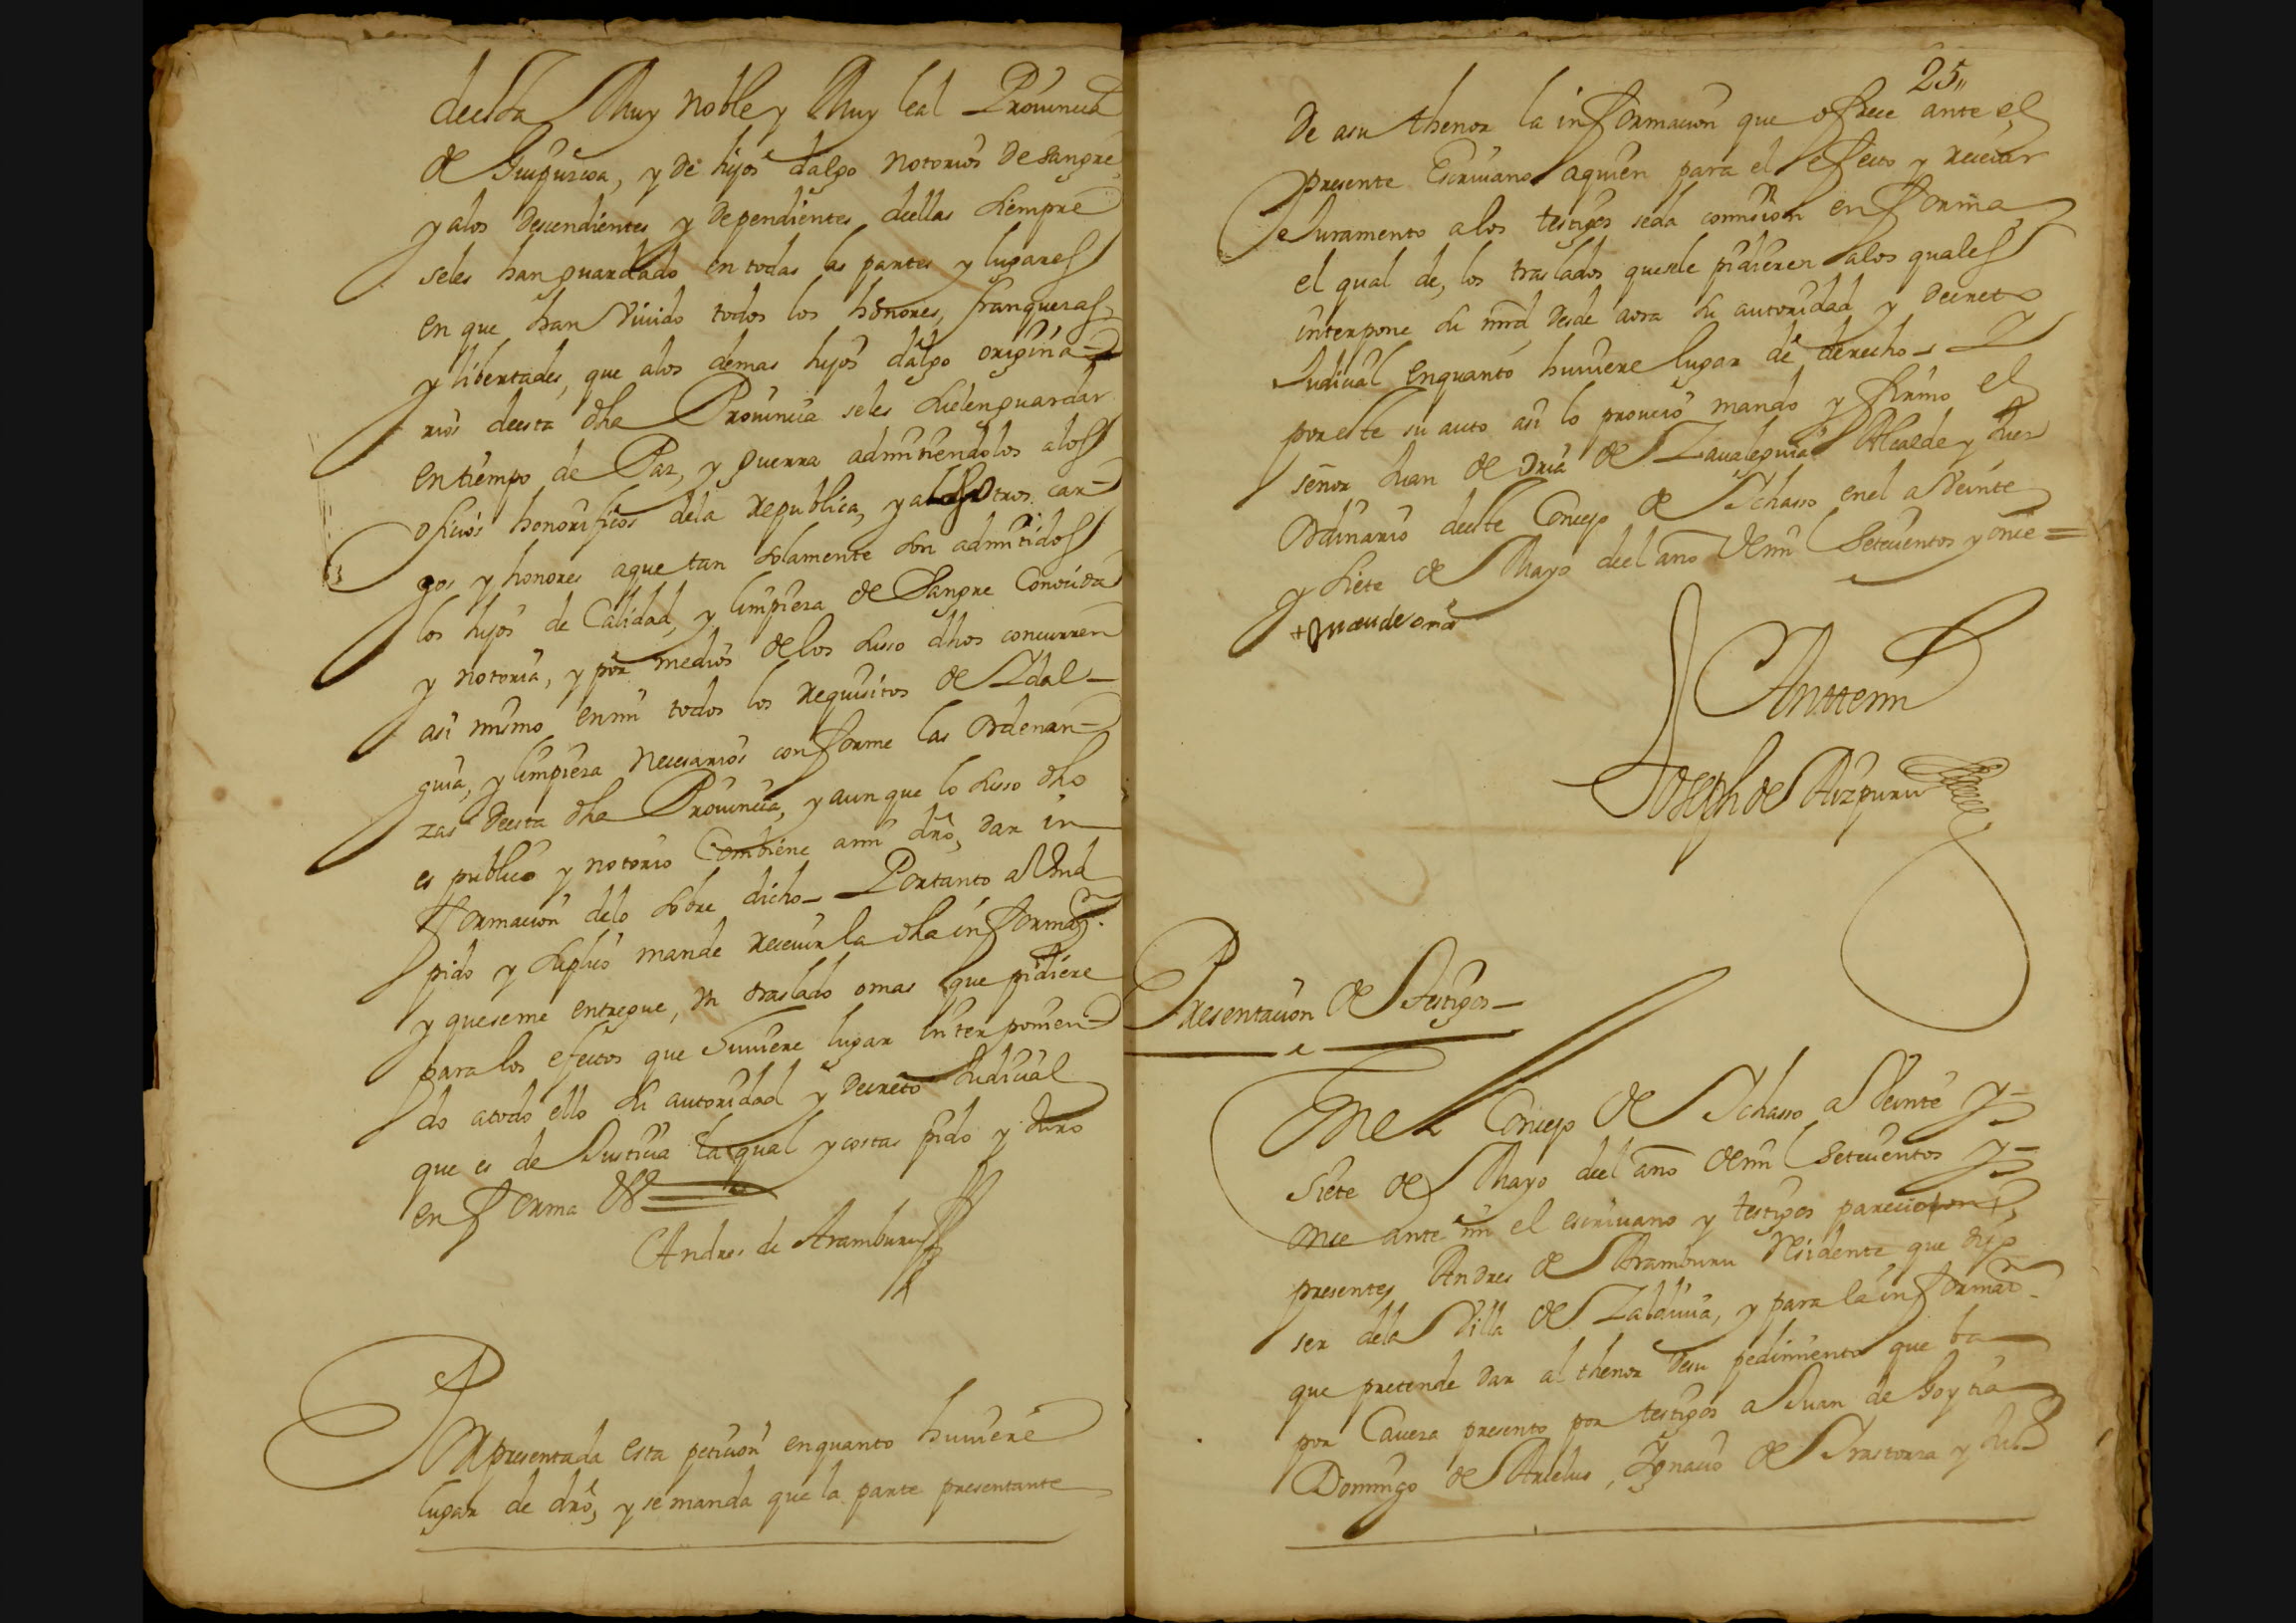 deesta Muy noble y Muy leal Prouincia
de Guipuzcoa, y de hijos dalgo notorios de sangre,
y alos descendientes y dependientes deellas siempre
seles han guardado en todas las partes y lugares
en que han Viuido todos los honores, franquezas,
y libertades, que alos demas hijos dalgo origina-
rios deesta dha Prouincia seles suelen guardar
en tiempo de Paz, y guerra admitiendolos alos
oficios honorificos dela republica, y alos otros car-
gos y honores aque tan solamente son admitidos
los hijos de Calidad, y limpieza de Sangre Conocida
y notoria, y por medios de los suso dhos concurren
asi mismo enmi todos los requisitos de Ydal-
guia, y limpieza necesarios conforme las ordenan-
zas deesta dha Prouincia, y aun que lo suso dho
es publico y notorio Combiene ami dro, dar in
formacion delo sobre dicho- Portanto a Vmd
pido y suplico mande receuir la dha informaon.
y queseme entregue, un traslado omas que pidiere
para los efectos que huuiere lugar interponien-
do atodo ello su autoridad y decreto Judicial
que es de Justicia la qual y costas pido y Juro
en forma &
Andres de Aramburu
Por presentada esta peticion enquanto huuiere
lugar de dro, y se manda que la parte presentante
25,,
de asu thenor la informacion que ofrece ante el
presente Escriuano aquien para el efecto y receuir
Juramento alos testigos seda comision en forma,
el qual de, los traslados quesele pidieren alos quales
interpone su mrd desde aora su autoridad y decreto
Judicial enquanto huuiere lugar de derecho- Y
por este su auto asi lo proueio mando y firmo el
señor Juan de oria de Zaualeguia Alcalde y Juez
Ordinario deeste Concejo de Ychasso enel a Veinte
y siete de Mayo deel año de mil Setecientos y once =
+ Juan de oria
Antemi
Joseph de Aizpuru
Presentacion de testigos-
Enel Concejo de Ychasso a Veinte y-
siete de Mayo deel año de mil Setecientos y-
once ante mi el escriuano y testigos parecio
presente, Andres de Aramburu residente que dijo
ser dela Villa de Zaldiuia, y para la informaon.
que pretende dar al thenor desu pedimiento que ba
por Caueza presento por testigos a Juan de Goytia
Domingo de Arzelus, Ygnacio de Yrastorza y Ju